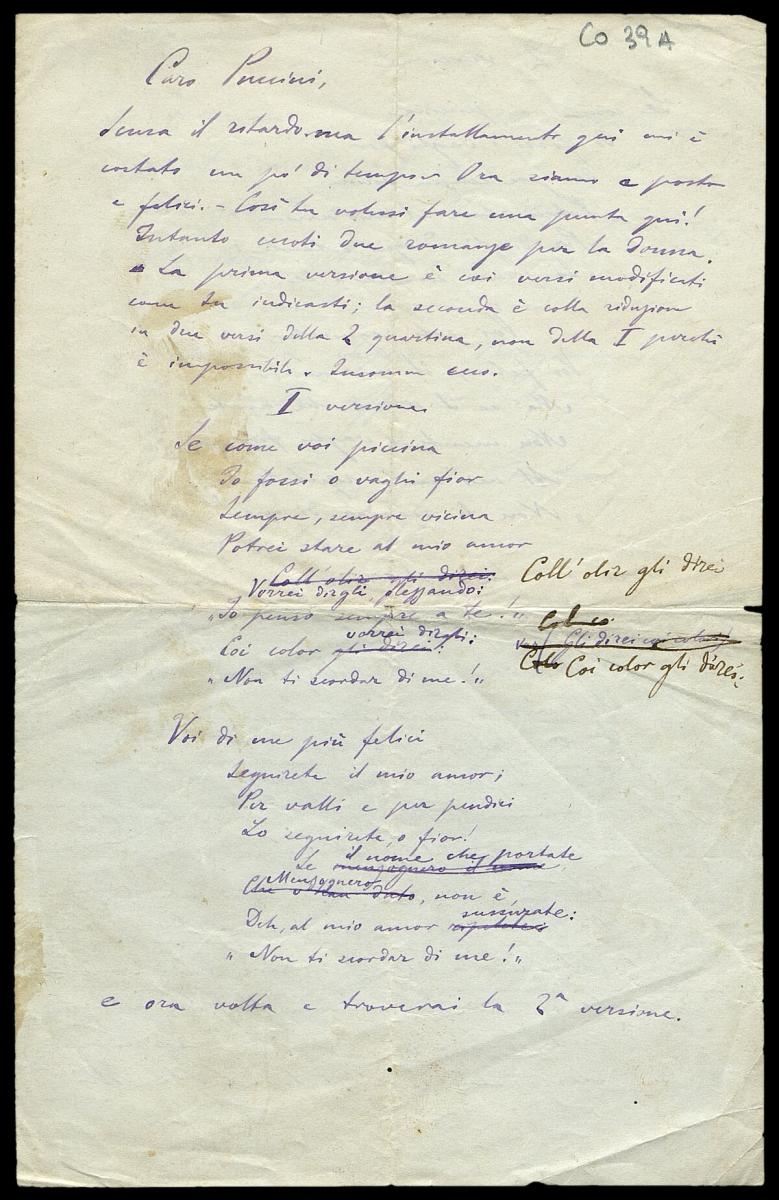 CO 39A
Caro Puccini,
Scusa il ritardo ma l'installamento qui mi è
costato un po' di tempo. Ora siamo a posto
e felici. - Così tu volessi fare una punta qui!
Intanto eccoti due romanze per la donna.
La prima versione è coi versi modificati
come tu indicasti; la seconda è colla riduzione
in due versi della 2 quartina, non della I perchè
è impossibile. Insomma ecco.
I versione.
Se come voi piccina
Io fossi o vaghi fior
Sempre, sempre vicina
Potrei stare al mio amor
Coll'oliz gli direi: Coll'oliz gli direi
Vorrei dirgli, olezzando:
"Io penso sempre a te!" Col co
vorrei dirgli: Gli direi coi colori
Coi color gli direi: Colo Coi color gli direi:
"Non ti scordar di me!"
Voi di me più felici
Seguirete il mio amor;
Per valli e per pendici
Lo seguirete, o fior!
il nome che portate
Se menzognero il nome
Menzognero
Che v'han dato, non è,
sussurrate:
Deh, al mio amor ripetete
"Non ti scordar di me!"
e ora volta e troverai la 2ª versione.